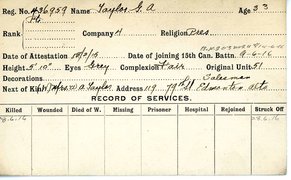 Reg. No. 436959 Name Taylor G. A Age 33
Rank Pte Company H Religion Pres.
Date of Attestation Date of joining 15th Can. Battn. 9-6-16
Height 5' 10" Eyes Grey Complexion Fair Original Unit 51
Decorations Salesman
Next of Kin Mrs A Taylor Address 119 79 St Edmonton Alta
RECORD OF SERVICES.
Killed Wounded Died of W. Missing Prisoner Hospital Rejoined Struck Off
8.6.16